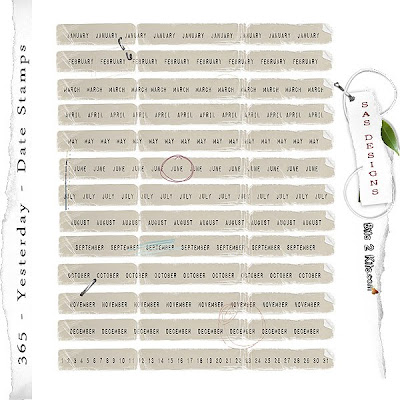 365 - Yesterday - Date Stamps
JANUARY JANUARY JANUARY JANUARY JANUARY JANUARY JANUARY JANUARY
FEBRUARY FEBRUARY FEBRUARY FEBRUARY FEBRUARY FEBRUARY FEBRUARY
MARCH MARCH MARCH MARCH MARCH MARCH MARCH MARCH MARCH MARCH
APRIL APRIL APRIL APRIL APRIL APRIL APRIL APRIL APRIL APRIL APRIL
MAY MAY MAY MAY MAY MAY MAY MAY MAY MAY MAY MAY MAY
JUNE JUNE JUNE JUNE JUNE JUNE JUNE JUNE JUNE JUNE JUNE JUNE
JULY JULY JULY JULY JULY JULY JULY JULY JULY JULY JULY JULY
AUGUST AUGUST AUGUST AUGUST AUGUST AUGUST AUGUST AUGUST AUGUST
SEPTEMBER SEPTEMBER SEPTEMBER SEPTEMBER SEPTEMBER SEPTEMBER SEPTEMBER
OCTOBER OCTOBER OCTOBER OCTOBER OCTOBER OCTOBER OCTOBER OCTOBER OCTOBER
NOVEMBER NOVEMBER NOVEMBER NOVEMBER NOVEMBER NOVEMBER NOVEMBER
DECEMBER DECEMBER DECEMBER DECEMBER DECEMBER DECEMBER DECEMBER
1 2 3 4 5 6 7 8 9 10 11 12 13 14 15 16 17 18 19 20 21 22 23 24 25 26 27 28 29 30 31
SAS DESIGNS
Bits 2 Kits.com